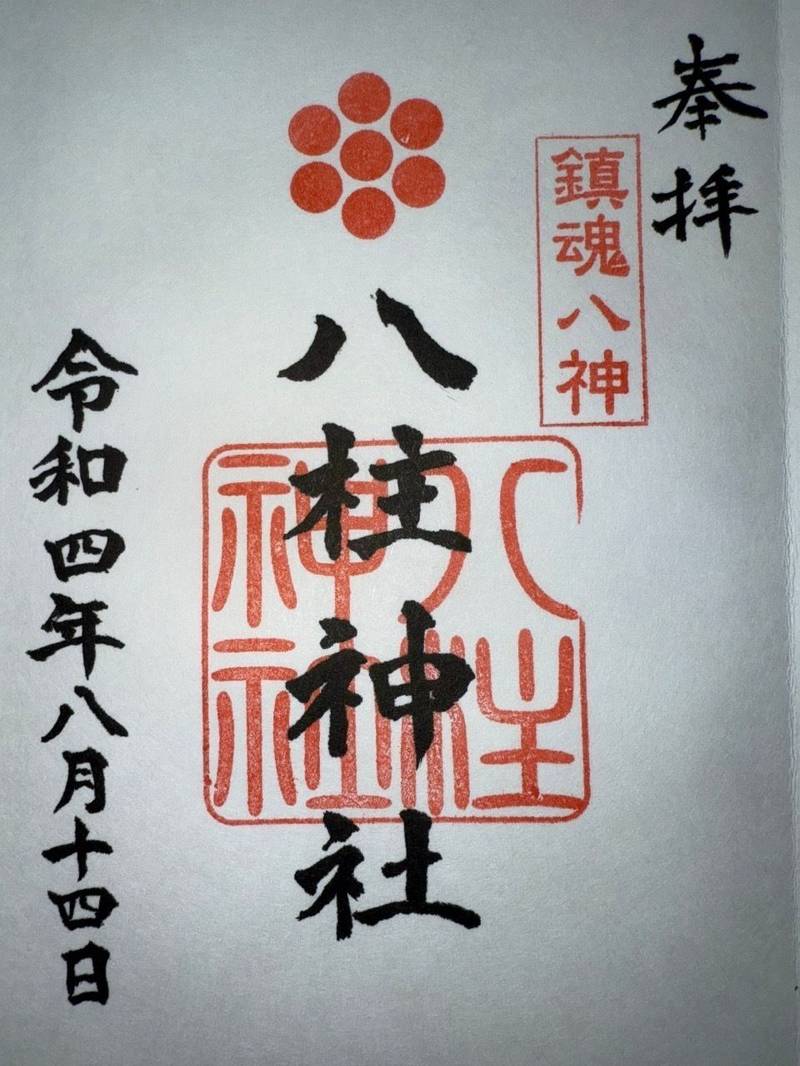 奉拝
鎮魂八神
八柱神社
八柱神社
令和四年八月十四日